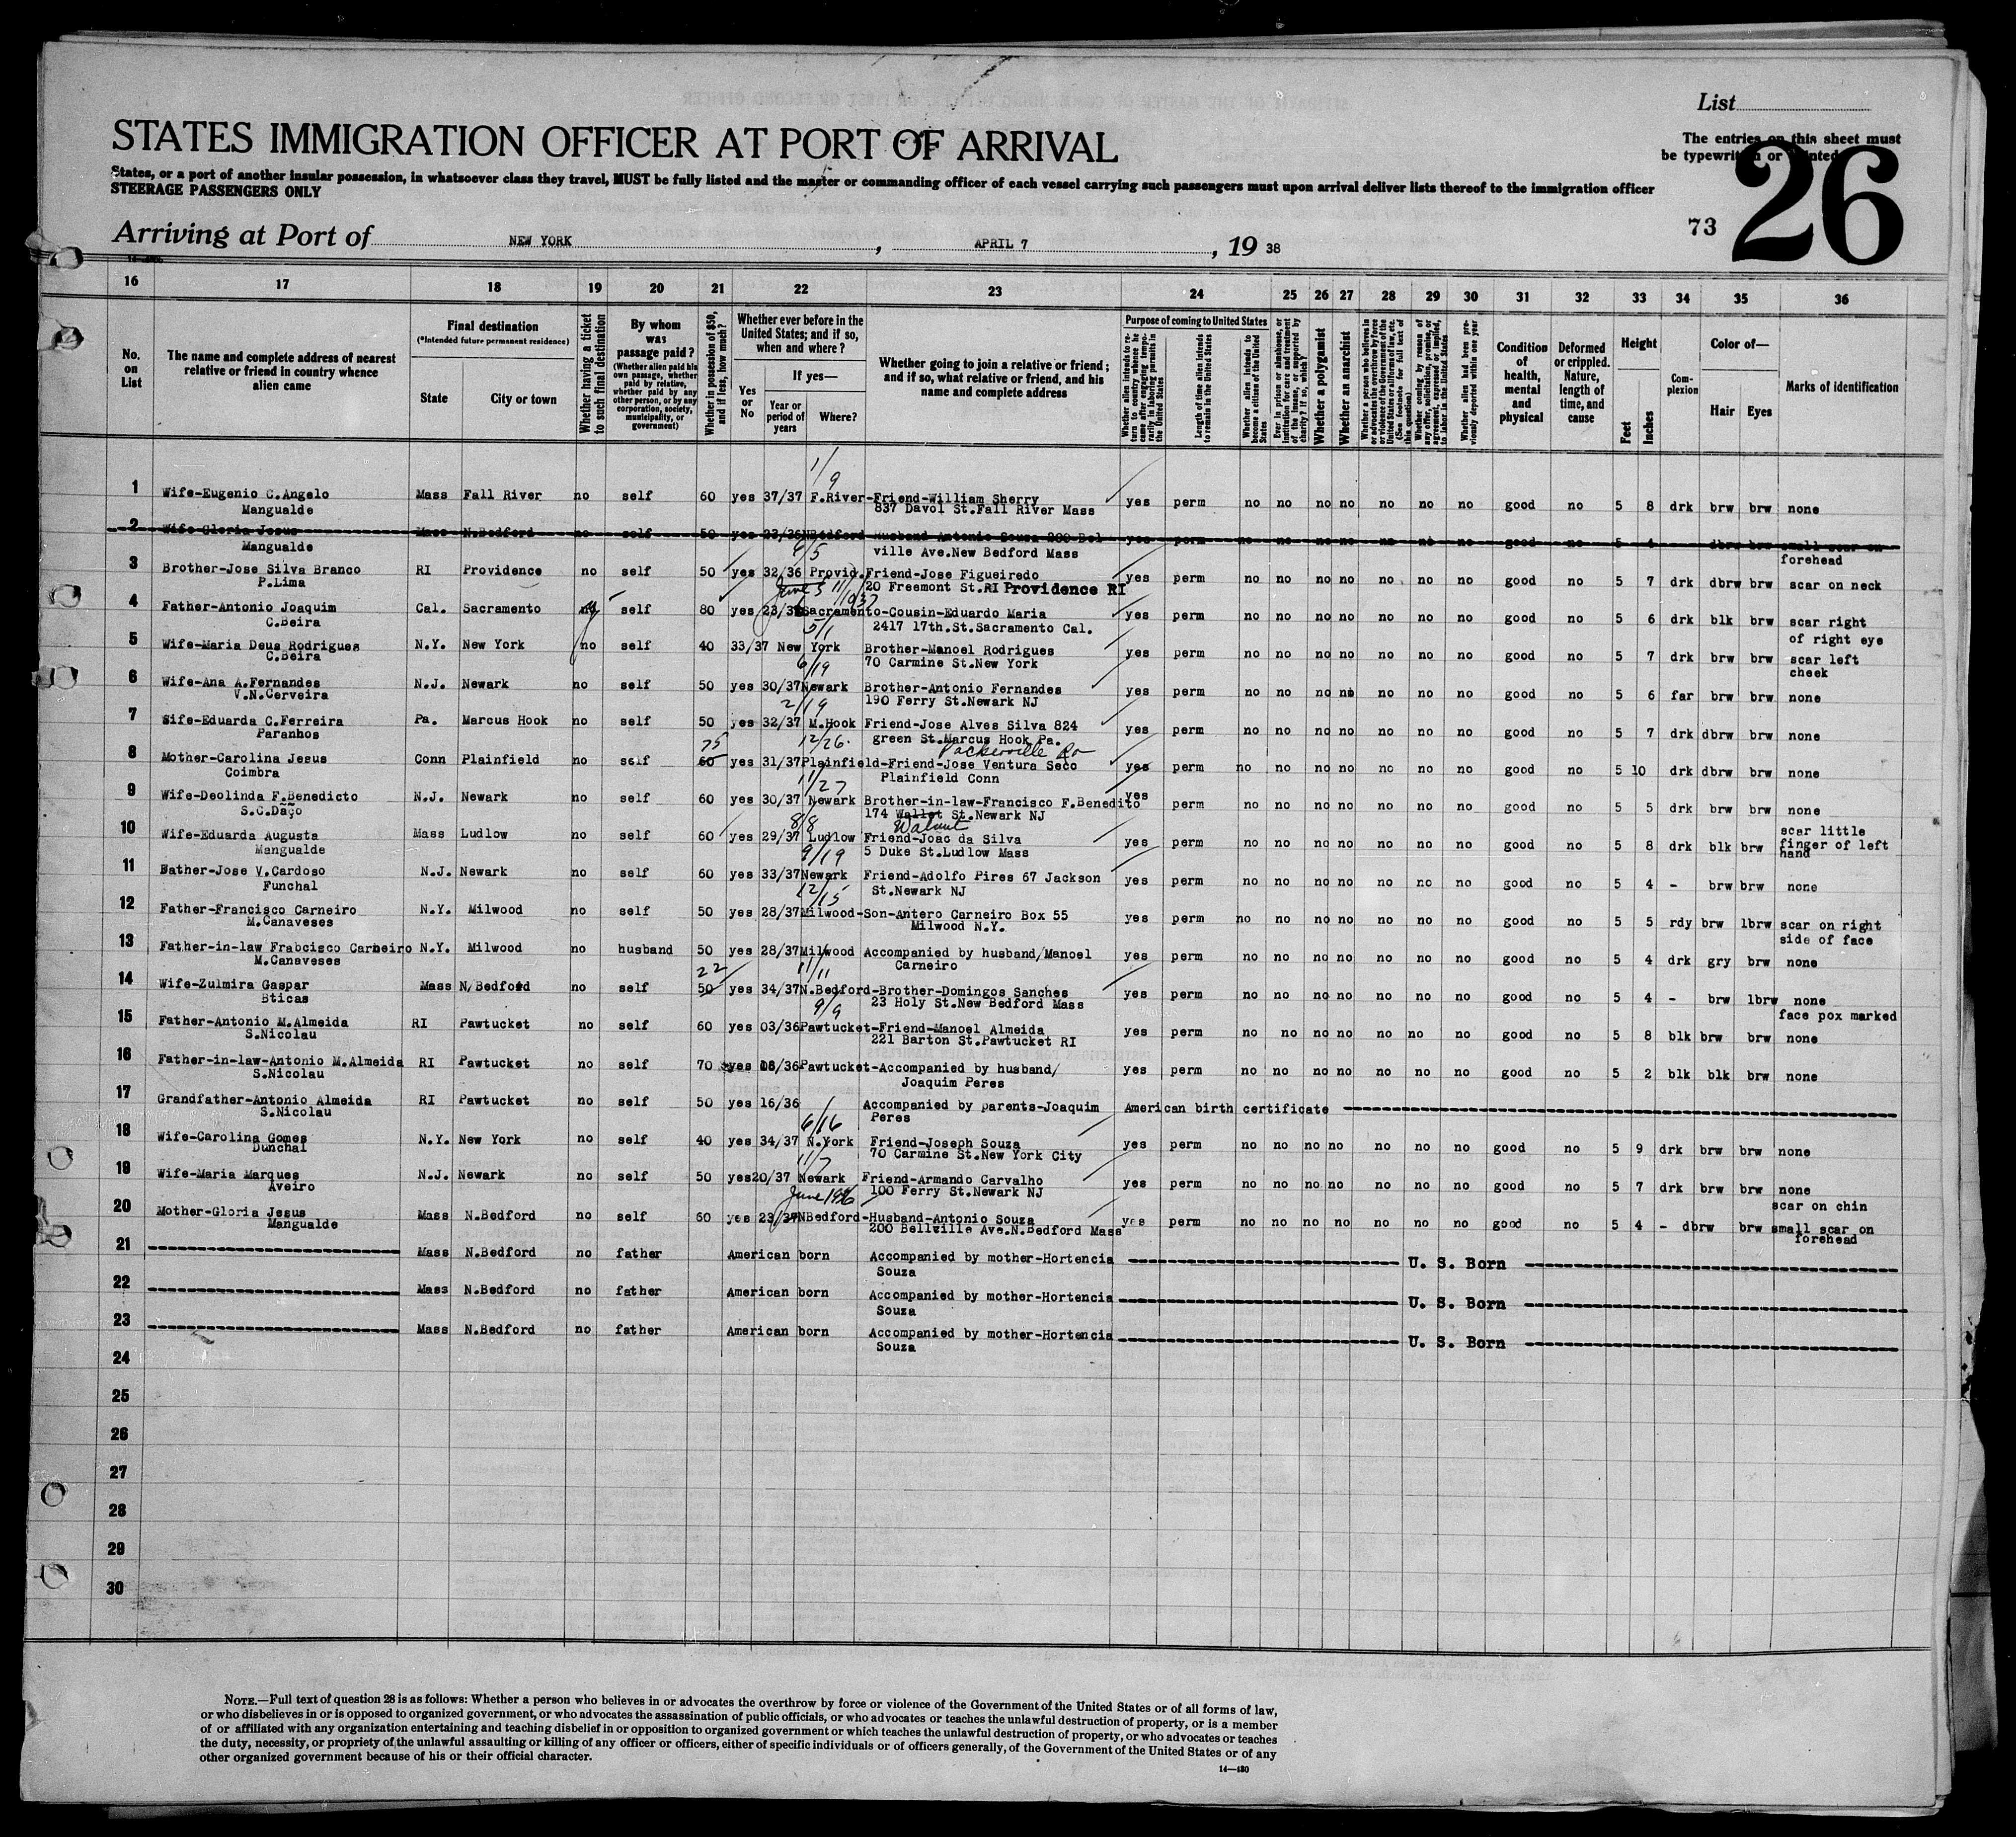 List
STATES IMMIGRATION OFFICER AT PORT OF ARRIVAL
The entries on this sheet must
be typewritten or printed
26
States, or a port of another insular possession, in whatsoever class they travel, MUST be fully listed and the master or commanding officer of each vessel carrying such passengers must upon arrival deliver lists thereof to the immigration officer
STEERAGE PASSENGERS ONLY
73
Arriving at Port of NEW YORK, APRIL 7, 19 38
16 17 18 19 20 21 22 23 24 25 26 27 28 29 30 31 32 33 34 35 36
No. on List
The name and complete address of nearest relative or friend in country whence alien came
Final destination
(*Intended future permanent residence)
State City or town
Whether having a ticket to such final destination
By whom was passage paid?
(Whether alien paid his own passage, whether paid by relative, whether paid by any other person, or by any corporation, society, municipality, or government)
Whether in possession of $50, and if less, how much?
Whether ever before in the United States; and if so, when and where?
Yes or No
If yes—
Year or period of years Where?
Whether going to join a relative or friend; and if so, what relative or friend, and his name and complete address
Purpose of coming to United States
Whether alien intends to return to country whence he came after engaging temporarily in laboring pursuits in the United States
Length of time alien intends to remain in the United States
Whether alien intends to become a citizen of the United States
Ever in prison or almshouse, or institution for care and treatment of the insane, or supported by charity? If so, which?
Whether a polygamist
Whether an anarchist
Whether a person who believes in or advocates the overthrow by force or violence of the Government of the United States or all forms of law, etc. (See footnote for full text of this question)
Whether coming by reason of any offer, solicitation, promise, or agreement, expressed or implied, to labor in the United States
Whether alien had been previously deported within one year
Condition of health, mental and physical
Deformed or crippled. Nature, length of time, and cause
Height
Feet Inches
Complexion
Color of—
Hair Eyes
Marks of identification
1/9
1 Wife-Eugenio C.Angelo Mass Fall River no self 60 yes 37/37 F.River-Friend-William Sherry yes perm no no no no no no no good no 5 8 drk brw brw none
Mangualde 837 Davol St.Fall River Mass
2 Wife-Gloria Jesus Mass N.Bedford no self 50 yes 23/36 NBedford Husband Antonio Souza 200 Bel- yes perm no no no no no no no good no 5 4 dbrw brw small scar on
Mangualde ville Ave.New Bedford Mass forehead
6/5
3 Brother-Jose Silva Branco RI Providence no self 50 yes 32/36 Provid.Friend-Jose Figueiredo yes perm no no no no no no no good no 5 7 drk dbrw brw scar on neck
P.Lima 20 Freemont St.RI Providence RI
4 Father-Antonio Joaquim Cal. Sacramento self 80 yes Sacramento-Cousin-Eduardo Maria yes perm no no no no no no no good no 5 6 drk blk brw scar right
C.Beira 2417 17th.St.Sacramento Cal. of right eye
5/1
5 Wife-Maria Deus Rodrigues N.Y. New York no self 40 33/37 New York Brother-Manoel Rodrigues yes perm no no no no no no no good no 5 7 drk brw brw scar left
C.Beira 70 Carmine St.New York cheek
6/19
6 Wife-Ana A.Fernandes N.J. Newark no self 50 yes 30/37 Newark Brother-Antonio Fernandes yes perm no no no no no no no good no 5 6 far brw brw none
V.N.Cerveira 190 Ferry St.Newark NJ
2/19
7 Sife-Eduarda C.Ferreira Pa. Marcus Hook no self 50 yes 32/37 M.Hook Friend-Jose Alves Silva 824 yes perm no no no no no no no good no 5 7 drk dbrw brw none
Paranhos green St.Marcus Hook Pa.
75 12/26. Packerville
8 Mother-Carolina Jesus Conn Plainfield no self 60 yes 31/37 Plainfield-Friend-Jose Ventura Seco yes perm no no no no no no no good no 5 10 drk dbrw brw none
Coimbra Plainfield Conn
11/27
9 Wife-Deolinda F.Benedicto N.J. Newark no self 60 yes 30/37 Newark Brother-in-law-Francisco F.Benedito yes perm no no no no no no no good no 5 5 drk brw brw none
S.C.Dão 174 Wallot St.Newark NJ
8/8 Walnut
10 Wife-Eduarda Augusta Mass Ludlow no self 60 yes 29/37 Ludlow Friend-Joac da Silva yes perm no no no no no no no good no 5 8 drk blk brw scar little
Mangualde 5 Duke St.Ludlow Mass finger of left
hand
9/19
11 Father-Jose V.Cardoso N.J. Newark no self 60 yes 33/37 Newark Friend-Adolfo Pires 67 Jackson yes perm no no no no no no no good no 5 4 - brw brw none
Funchal St.Newark NJ
12/15
12 Father-Francisco Carneiro N.Y. Milwood no self 50 yes 28/37 Milwood-Son-Antero Carneiro Box 55 yes perm no no no no no no no good no 5 5 rdy brw lbrw scar on right
M.Canaveses Milwood N.Y. side of face
13 Father-in-law Frabcisco Carneiro N.Y. Milwood no husband 50 yes 28/37 Milwood Accompanied by husband/Manoel yes perm no no no no no no no good no 5 4 drk gry brw none
M.Canaveses Carneiro
22 11/11
14 Wife-Zulmira Gaspar Mass N/Bedford no self 50 yes 34/37 N.Bedford-Brother-Domingos Sanches yes perm no no no no no no no good no 5 4 - brw lbrw none
Bticas 23 Holy St.New Bedford Mass
9/9
15 Father-Antonio M.Almeida RI Pawtucket no self 60 yes 03/36 Pawtucket-Friend-Manoel Almeida yes perm no no no no no no no good no 5 8 blk brw brw face pox marked
S.Nicolau 221 Barton St.Pawtucket RI none
16 Father-in-law-Antonio M.Almeida RI Pawtucket no self 70 yes /36 Pawtucket-Accompanied by husband/ yes perm no no no no no no no good no 5 2 blk blk brw none
S.Nicolau Joaquim Peres
17 Grandfather-Antonio Almeida RI Pawtucket no self 50 yes 16/36 Accompanied by parents-Joaquim American birth certificate
S.Nicolau Peres
6/16
18 Wife-Carolina Gomes N.Y. New York no self 40 yes 34/37 N.York Friend-Joseph Souza yes perm no no no no no no no good no 5 9 drk brw brw none
Dunchal 70 Carmine St.New York City
11/7
19 Wife-Maria Marques N.J. Newark no self 50 yes 20/37 Newark Friend-Armando Carvalho yes perm no no no no no no no good no 5 7 drk brw brw none
Aveiro 100 Ferry St.Newark NJ scar on chin
June 1936
20 Mother-Gloria Jesus Mass N.Bedford no self 60 yes 23/37 NBedford-Husband-Antonio Souza yes perm no no no no no no no good no 5 4 - dbrw brw small scar on
Mangualde 200 Bellville Ave.N.Bedford Mass forehead
21 Mass N.Bedford no father American born Accompanied by mother-Hortencia U. S. Born
Souza
22 Mass N.Bedford no father American born Accompanied by mother-Hortencia U. S. Born
Souza
23 Mass N.Bedford no father American born Accompanied by mother-Hortencia U. S. Born
Souza
24
25
26
27
28
29
30
NOTE.—Full text of question 28 is as follows: Whether a person who believes in or advocates the overthrow by force or violence of the Government of the United States or of all forms of law,
or who disbelieves in or is opposed to organized government, or who advocates the assassination of public officials, or who advocates or teaches the unlawful destruction of property, or is a member
of or affiliated with any organization entertaining and teaching disbelief in or opposition to organized government or which teaches the unlawful destruction of property, or who advocates or teaches
the duty, necessity, or propriety of the unlawful assaulting or killing of any officer or officers, either of specific individuals or of officers generally, of the Government of the United States or of any
other organized government because of his or their official character.
14—430